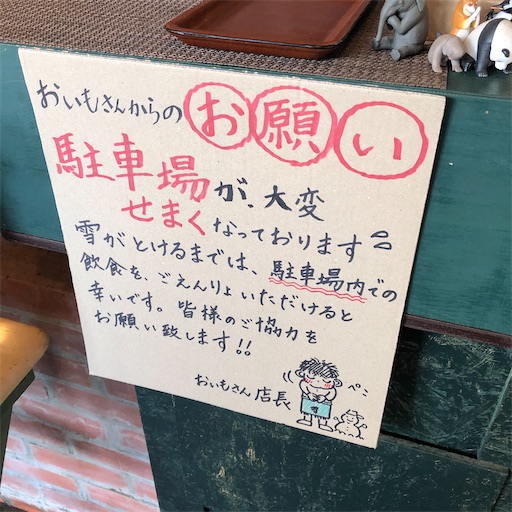 おいもさんからのお願い
駐車場が、大変
せまくなっております
雪がとけるまでは、駐車場内での
飲食を、ごえんりょいただけると
幸いです。皆様のご協力を
お願い致します!!
おいもさん店長
ぺこ